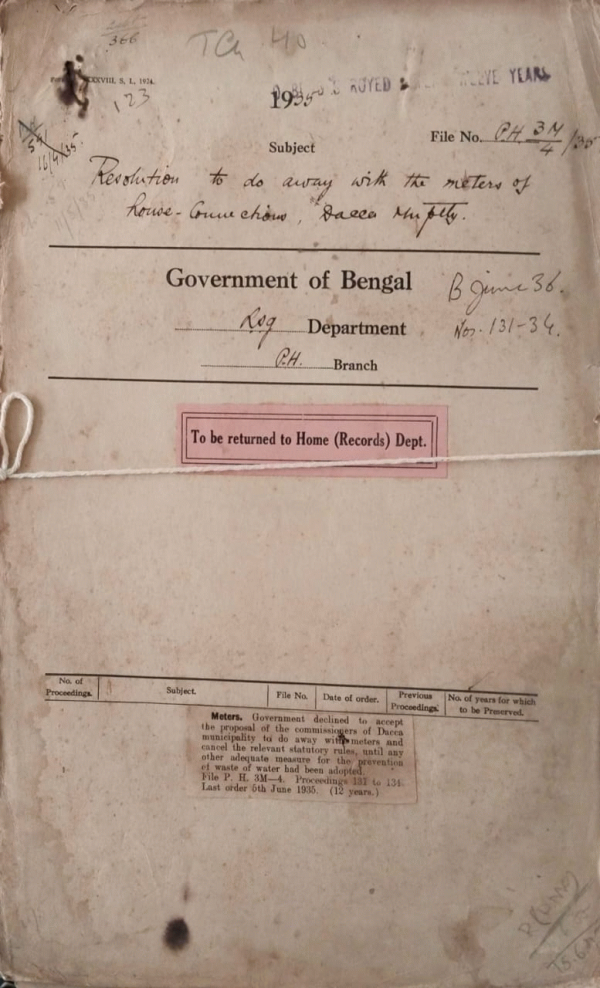 366
TCh 40
XXXVIII, S. I., 1924.
123
ROYED TWELVE YEARS
1935
16/4/35
File No. P.H. 3M/4/35
Subject
Resolution to do away with the meters of
house-Connections, Dacca Mnptty.
Government of Bengal
B June 36.
Lsg Department
Nos. 131-34.
P.H. Branch
To be returned to Home (Records) Dept.
No. of Proceedings. Subject. File No. Date of order. Previous Proceedings. No. of years for which to be Preserved.
Meters. Government declined to accept
the proposal of the commissioners of Dacca
municipality to do away with meters and
cancel the relevant statutory rules, until any
other adequate measure for the prevention
of waste of water had been adopted.
File P. H. 3M—4. Proceedings 131 to 134.
Last order 5th June 1935. (12 years.)